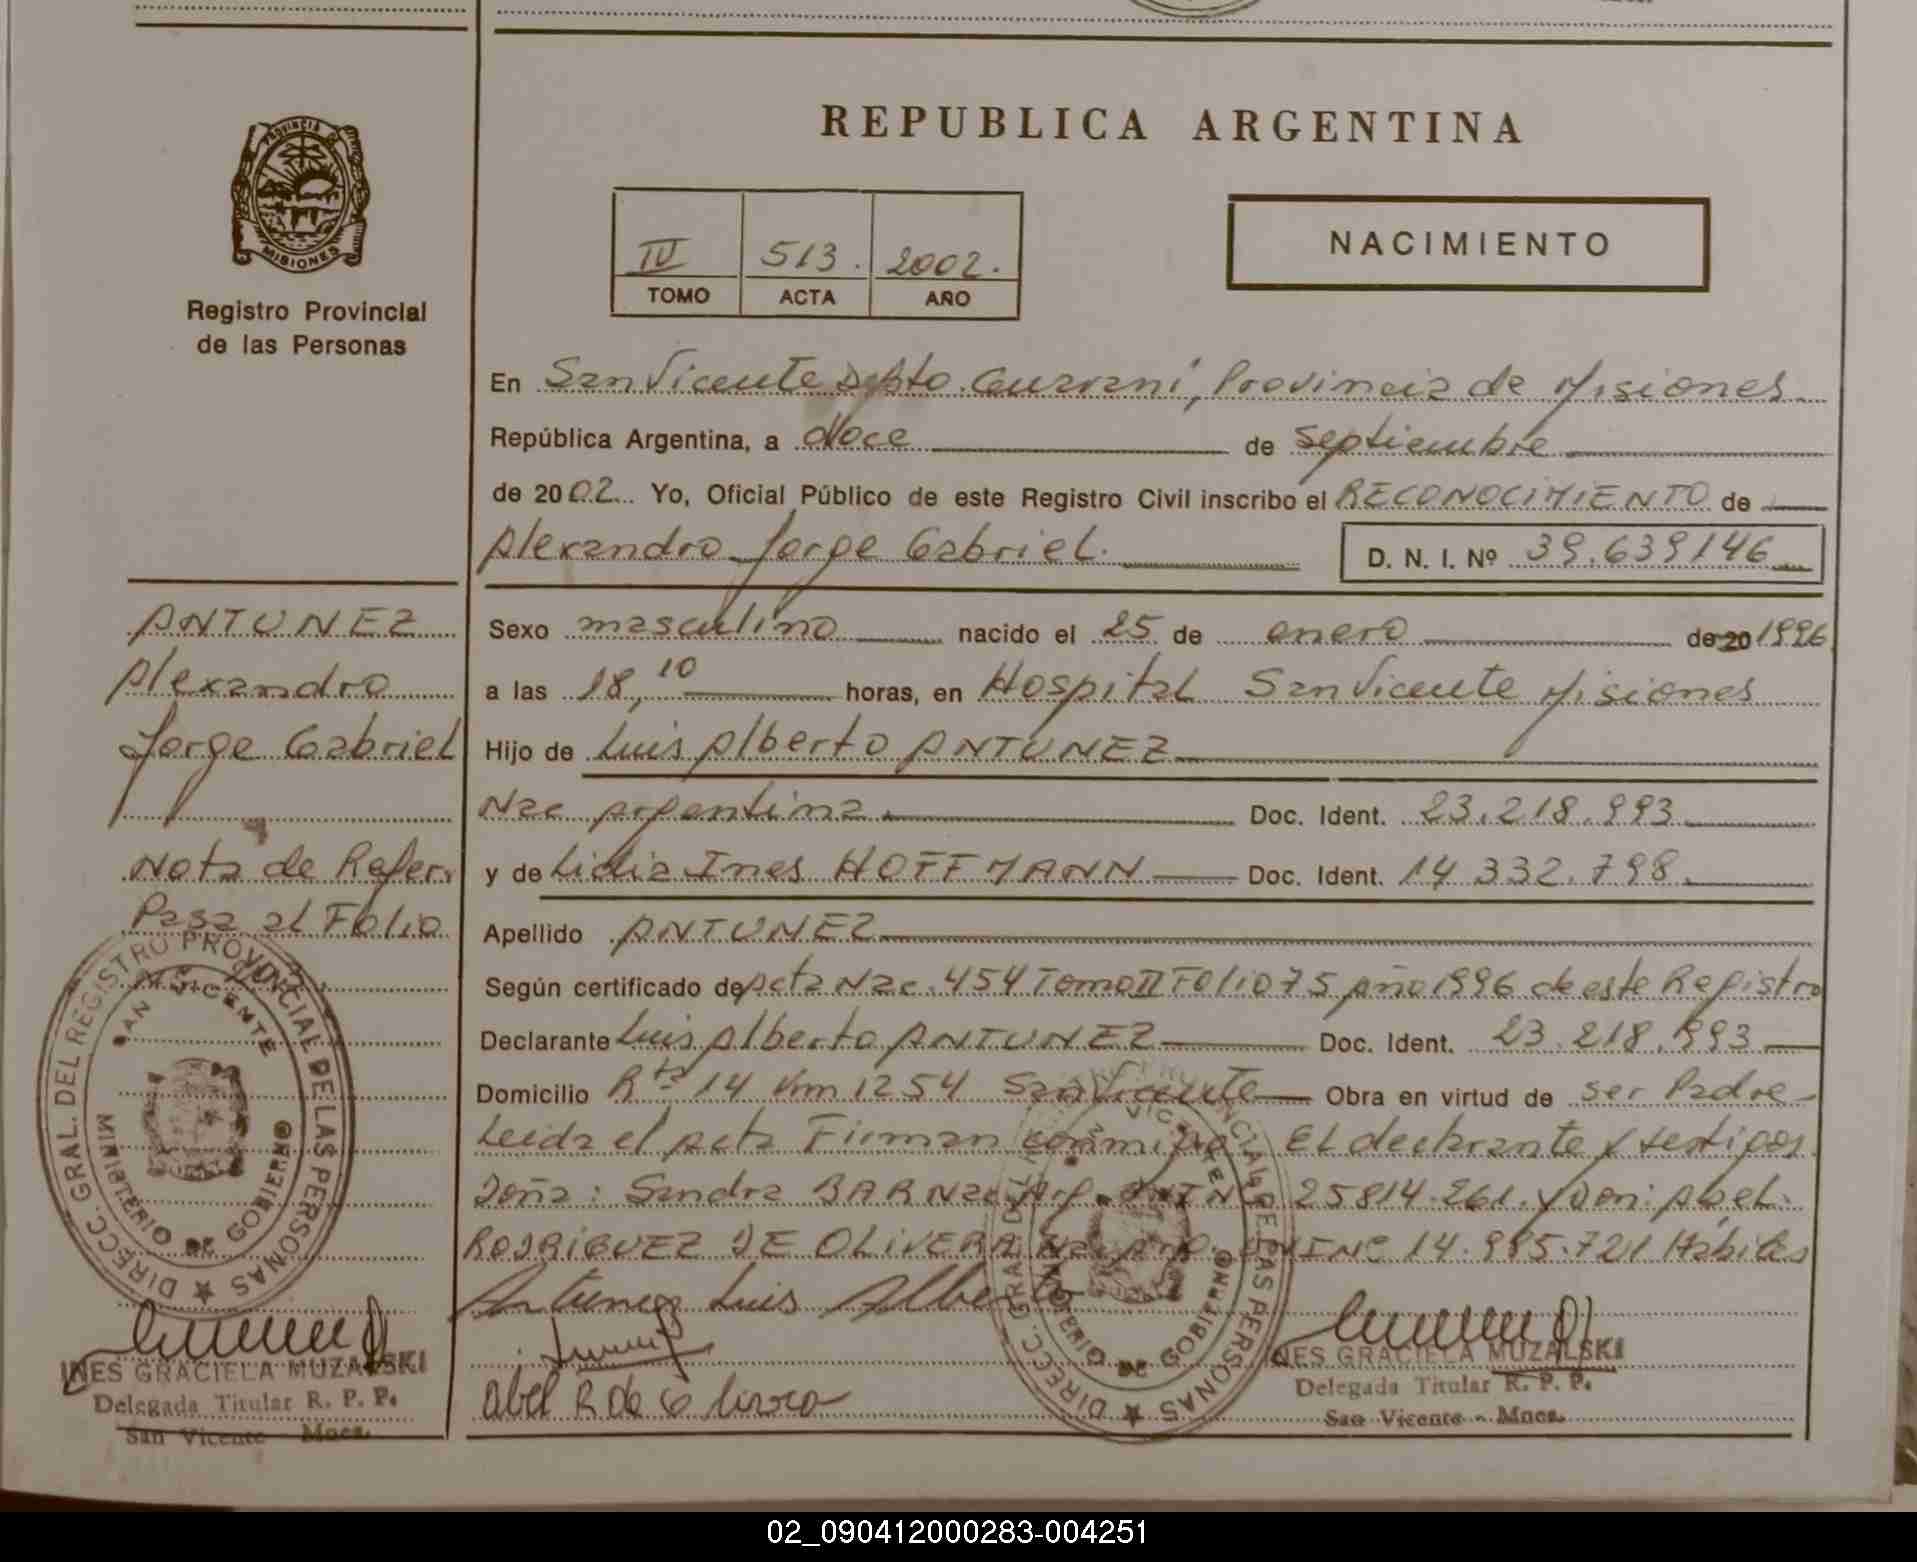 REPUBLICA ARGENTINA
PROVINCIA DE
MISIONES
Registro Provincial
de las Personas
IV 513. 2002.
TOMO ACTA AÑO
NACIMIENTO
En San Vicente Depto. Guaraní, Provincia de Misiones
República Argentina, a doce de septiembre
de 2002 Yo, Oficial Público de este Registro Civil inscribo el RECONOCIMIENTO de
Alexandro Jorge Gabriel. D. N. I. Nº 39.639146
Sexo masculino nacido el 25 de enero de 20 1996
a las 18,10 horas, en Hospital San Vicente Misiones
Hijo de Luis Alberto ANTUNEZ
Nac argentina. Doc. Ident. 23.218.993
y de Lidia Ines HOFFMANN Doc. Ident. 14 332.798.
Apellido ANTUNEZ
Según certificado de Acta Nac. 454 Tomo II Folio 75 Año 1996 de este Registro
Declarante Luis Alberto ANTUNEZ Doc. Ident. 23.218.993
Domicilio Rta 14 Km 1254 San Vicente Obra en virtud de ser Padre
Leida el Acta Firman conmigo El declarante y testigos
Doña: Sandra BAR Nac Arg. 25814.261. y Don: Abel
RODRIGUEZ DE OLIVERA Nac Arg. 14.985.721 Hábiles
Antunez Luis Alberto
Abel R de Olivera
ANTUNEZ
Alexandro
Jorge Gabriel
Nota de Refer.
Pasa al Folio
DIRECC. GRAL. DEL REGISTRO PROVINCIAL DE LAS PERSONAS
SAN VICENTE
MINISTERIO DE GOBIERNO
INES GRACIELA MUZALSKI
Delegada Titular R. P. P.
San Vicente Mnes.
DIRECC. GRAL. DEL REGISTRO PROVINCIAL DE LAS PERSONAS
MINISTERIO DE GOBIERNO
INES GRACIELA MUZALSKI
Delegada Titular R. P. P.
San Vicente - Mnes.
02_090412000283-004251